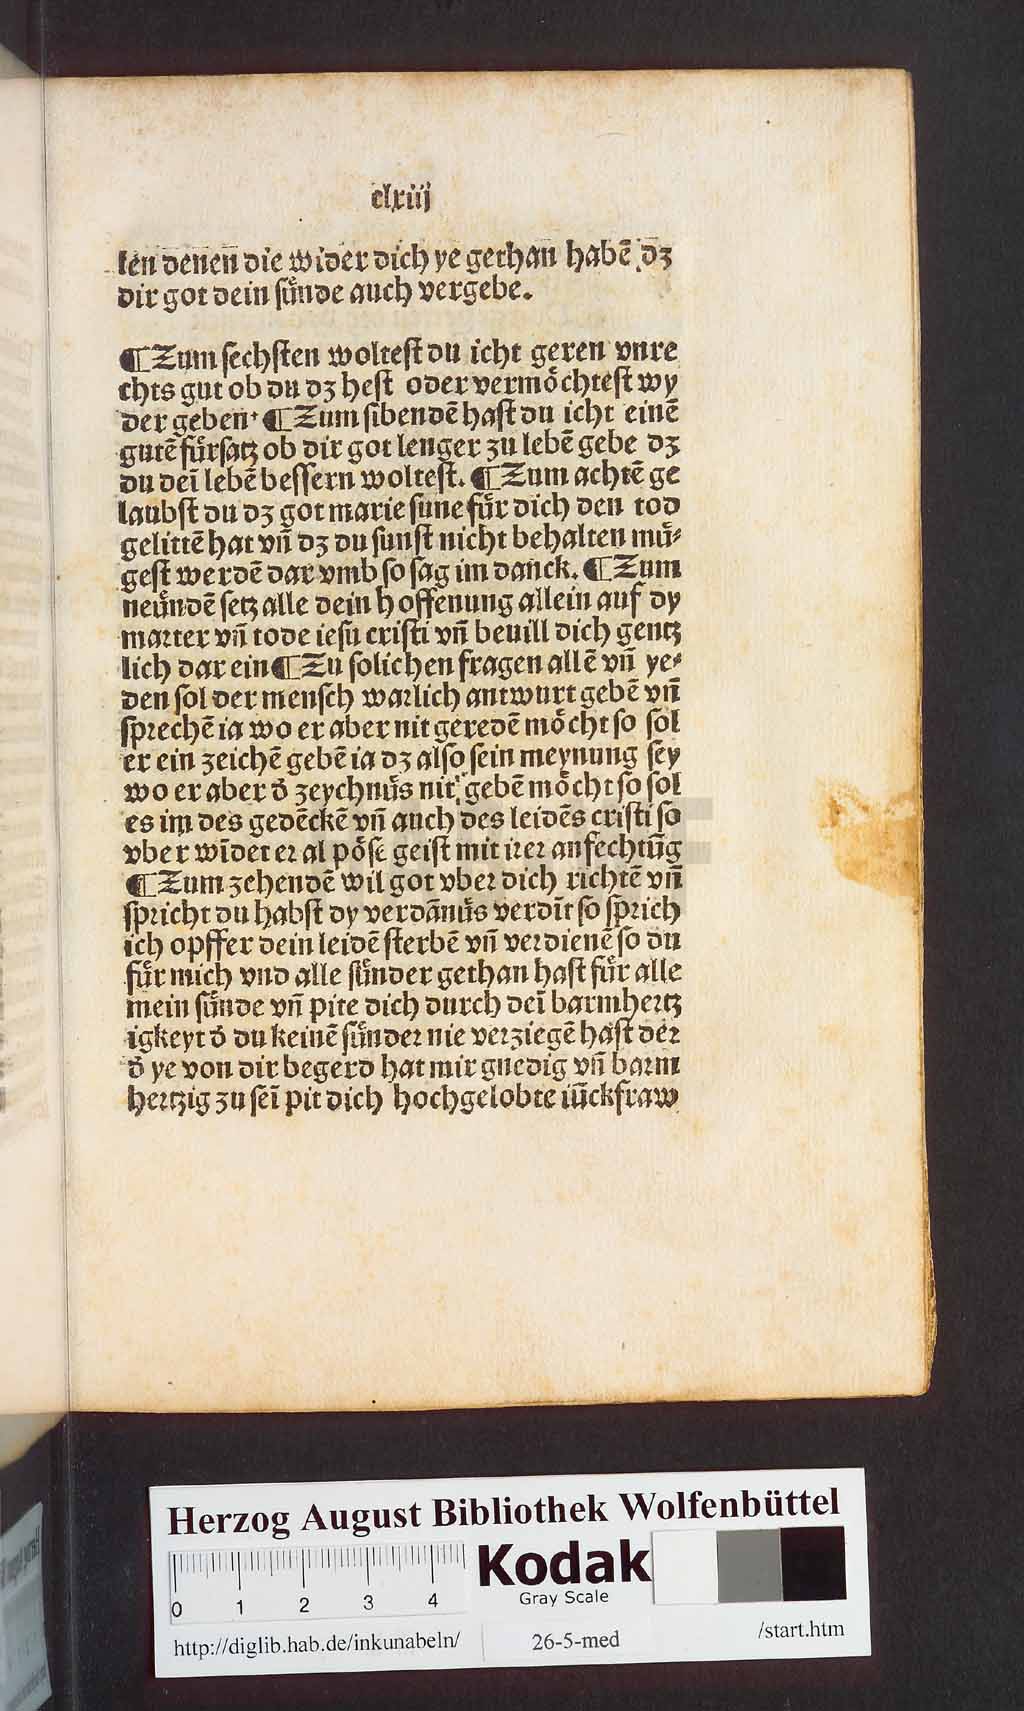 clxiij
ken denen die wider dich ye gethan habē dz
dir got dein sůnde auch vergebe.
¶Zum sechsten woltest du icht geren vnre
chts gut ob du dz hest oder vermöchtest wy
der geben ¶Zum sibendē hast du icht einē
gutē fůrsatz ob dir got lenger zu lebē gebe dz
du deī lebē bessern woltest. ¶Zum achtē ge
laubst du dz got marie sune fůr dich den tod
gelittē hat vn̄ dz du sunst nicht behalten mů⸗
gest werdē dar vmb so sag im danck. ¶Zum
neůndē setz alle dein hoffenung allein auf dy
marter vn̄ tode iesu cristi vn̄ beuill dich gentz
lich dar ein ¶Zu solichen fragen allē vn̄ ye⸗
den sol der mensch warlich antwurt gebē vn̄
sprechē ia wo er aber nit geredē möcht so sol
er ein zeichē gebē ia dz also sein meynung sey
wo er aber d̄ zeychnůs nit gebē möcht so sol
es im des gedēckē vn̄ auch des leidēs cristi so
vber wīdet er al pöse geist mit irer anfechtūg
¶Zum zehendē wil got vber dich richtē vn̄
spricht du habst dy verdānůs verdīt so sprich
ich opffer dein leidē sterbē vn̄ verdienē so du
fůr mich vnd alle sůnder gethan hast fůr alle
mein sůnde vn̄ pite dich durch deī barmhertz
igkeyt d̄ du keinē sůnder nie verziegē hast der
d̄ ye von dir begerd hat mir gnedig vn̄ barm
hertzig zu seī pit dich hochgelobte iūckfraw
Herzog August Bibliothek Wolfenbüttel
Kodak
Gray Scale
0 1 2 3 4
http://diglib.hab.de/inkunabeln/
26-5-med
/start.htm